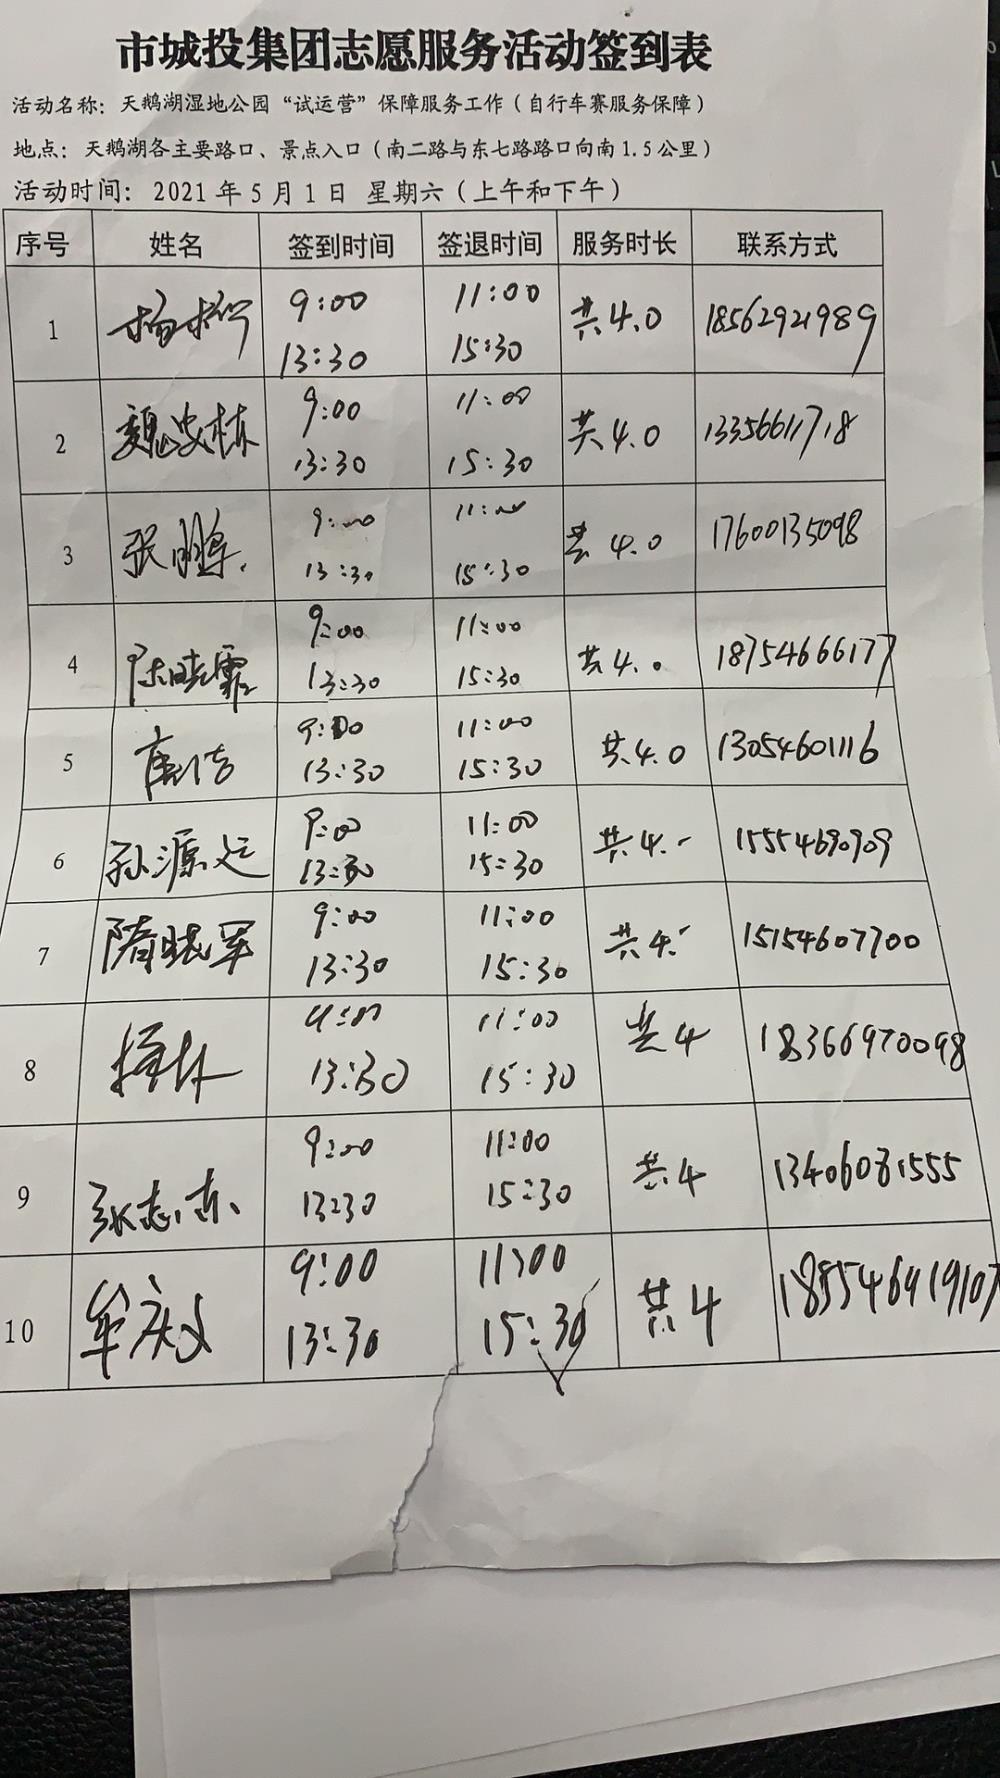 市城投集团志愿服务活动签到表
活动名称：天鹅湖湿地公园“试运营”保障服务工作（自行车赛服务保障）
地点：天鹅湖各主要路口、景点入口（南二路与东七路路口向南1.5公里）
活动时间：2021年5月1日 星期六（上午和下午）
序号 姓名 签到时间 签退时间 服务时长 联系方式
1 杨柳 9:00 11:00 共4.0 18562921989
13:30 15:30
2 魏忠林 9:00 11:00 共4.0 13356611718
13:30 15:30
3 张鹏 9:00 11:00 共4.0 17600135098
13:30 15:30
4 陈晓霏 9:00 11:00 共4.0 18754666177
13:30 15:30
5 唐洁 9:00 11:00 共4.0 13054601116
13:30 15:30
6 孙源远 9:00 11:00 共4. 15554690909
13:30 15:30
7 隋晓军 9:00 11:00 共4. 15154607700
13:30 15:30
8 9:00 11:00 共4 18366970098
13:30 15:30
9 张志东 9:00 11:00 共4 13406081555
13:30 15:30
10 牟庆文 9:00 11:00 共4 18554649107
13:30 15:30